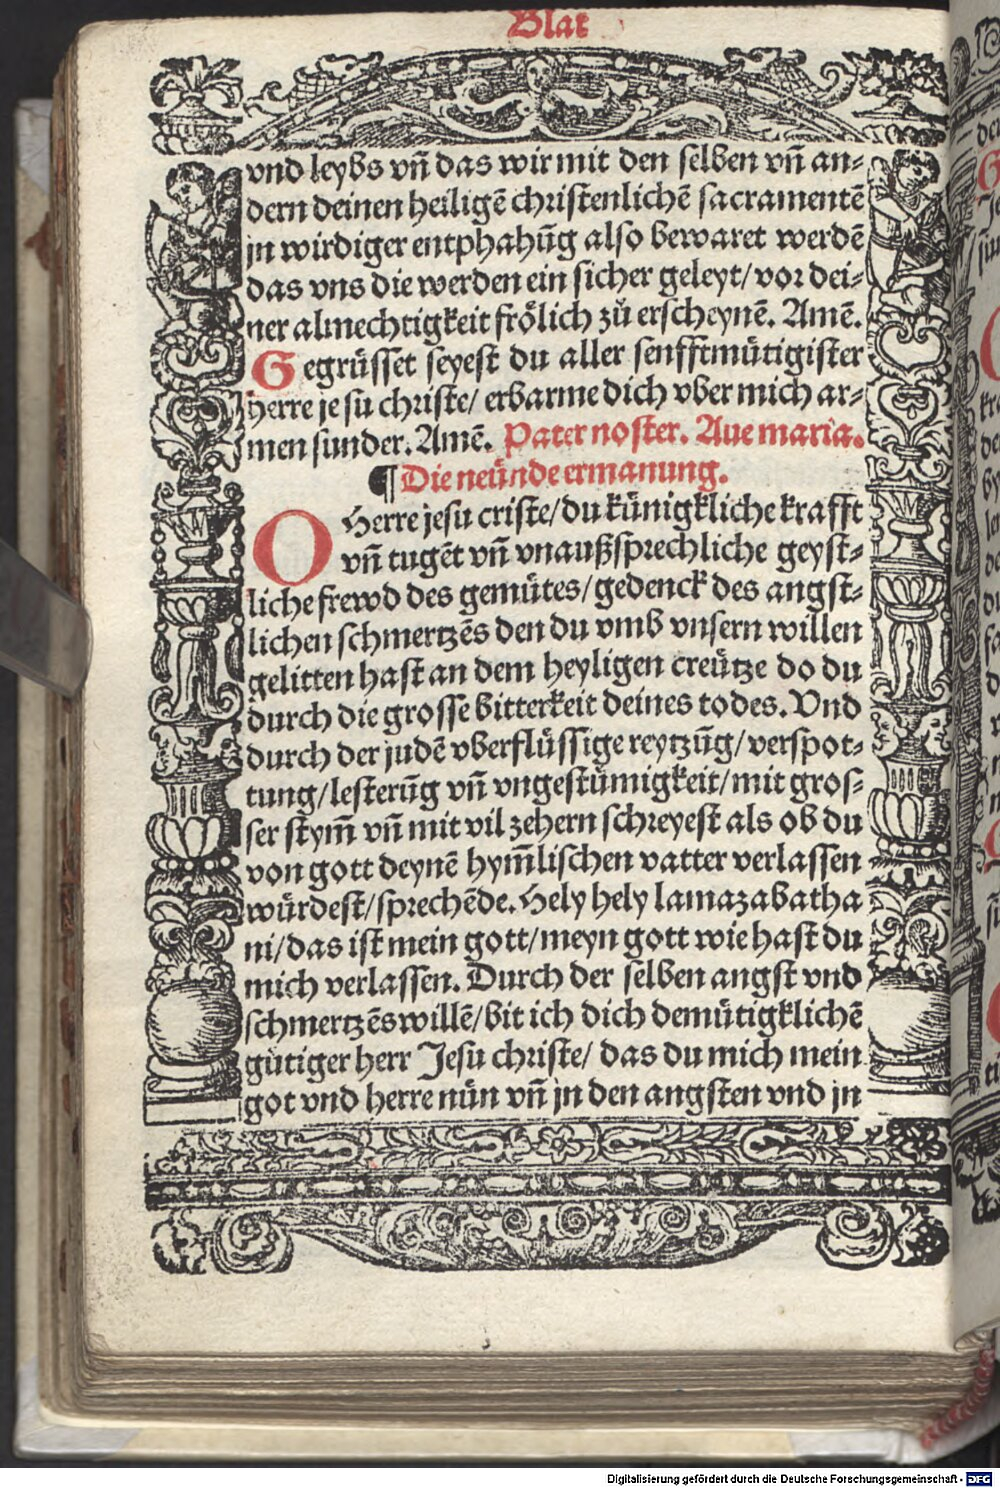 Blat
vnd leybs vn̄ das wir mit den selben vn̄ an⸗
dern deinen heiligē christenlichē sacramentē
jn wirdiger entphahūg also bewaret werdē
das vns die werden ein sicher geleyt/ vor dei⸗
ner almechtigkeit frölich zů erscheynē. Amē.
Gegrüsset seyest du aller senfftmütigister
herre jesu christe/ erbarme dich vber mich ar⸗
men sunder. Amē. Pater noster. Aue maria.
¶ Die neünde ermanung.
O Herre jesu criste/ du künigkliche krafft
vn̄ tugēt vn̄ vnaußsprechliche geyst⸗
liche frewd des gemütes/ gedenck des angst⸗
lichen schmertzēs den du vmb vnsern willen
gelitten hast an dem heyligen creütze do du
durch die grosse bitterkeit deines todes. Vnd
durch der judē vberflüssige reytzūg/ verspot⸗
tung/ lesterūg vn̄ vngestümigkeit/ mit gros⸗
ser stym̄ vn̄ mit vil zehern schreyest als ob du
von gott deynē hym̄lischen vatter verlassen
würdest/ sprechēde. Hely hely lamazabatha
ni/ das ist mein gott/ meyn gott wie hast du
mich verlassen. Durch der selben angst vnd
schmertzēs willē/ bit ich dich demütigklichē
gütiger herr Jesu christe/ das du mich mein
got vnd herre nün vn̄ jn den angsten vnd jn
Digitalisierung gefördert durch die Deutsche Forschungsgemeinschaft - DFG